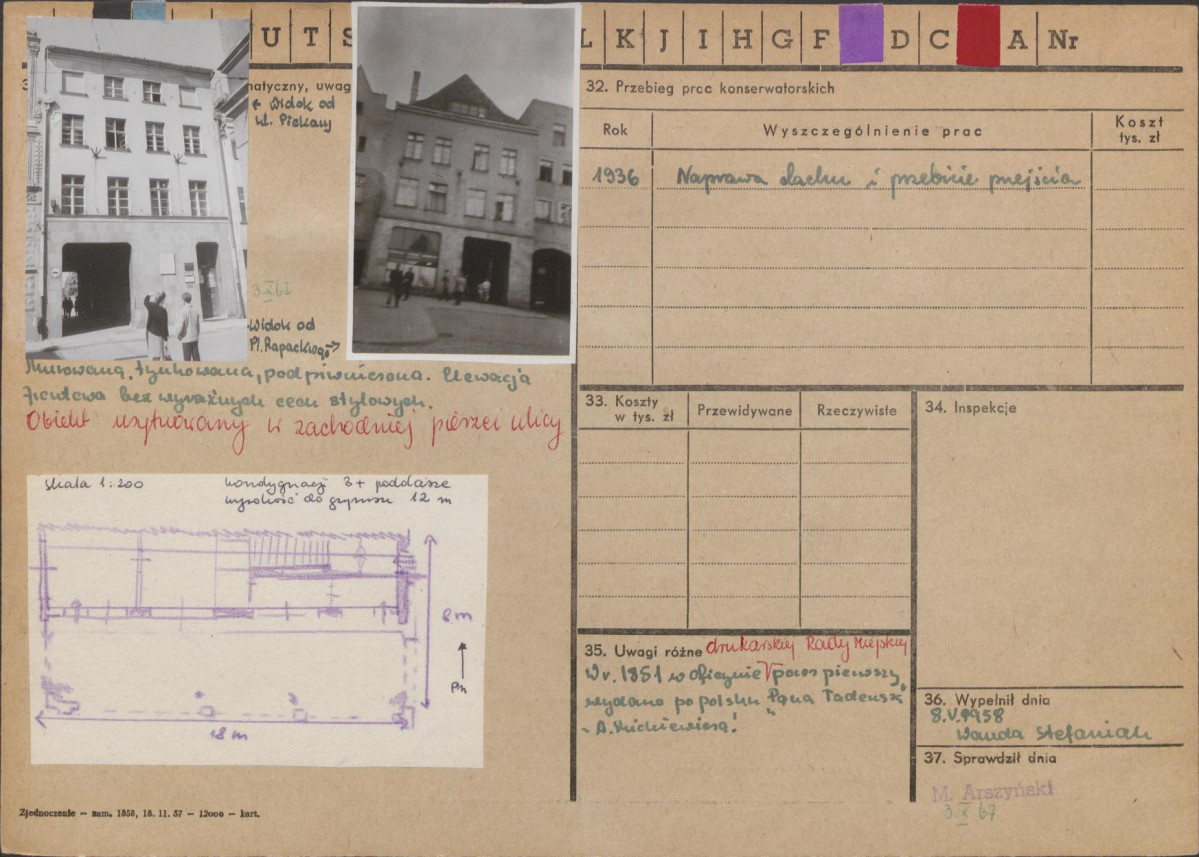 U T S L K J I H G F D C A Nr
atyczny, uwag
← Widok od
ul. Piekary
3.X.67
Widok od
Pl. Rapackiego →
Murowana, tynkowana, podpiwniczona. Elewacja
frontowa bez wyraźnych cech stylowych.
Obiekt usytuowany w zachodniej pierzei ulicy
skala 1:200
kondygnacji 3 + poddasze
wysokość do gzymsu 12 m
8 m
Pn
18 m
Zjednoczenie — zam. 1858, 18. 11. 57 — 12000 — kart.
32. Przebieg prac konserwatorskich
Rok
Wyszczególnienie prac
Koszt
tys. zł
1936 Naprawa dachu i przebicie przejścia
33. Koszty
w tys. zł
Przewidywane
Rzeczywiste
34. Inspekcje
35. Uwagi różne drukarskiej Rady Miejskiej
W r. 1851 w oficynie poraz pierwszy
wydano po polsku „Pana Tadeusza"
- A. Mickiewicza!
36. Wypełnił dnia
8.V.1958
Wanda Stefaniak
37. Sprawdził dnia
M. Arszyński
3.X.67